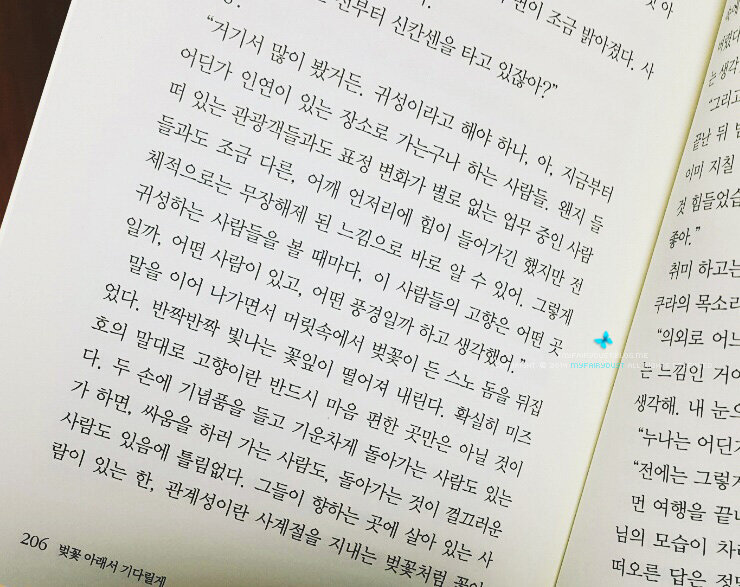 조금 밝아졌다. 사
전부터 신칸센을 타고 있잖아?”
“거기서 많이 봤거든. 귀성이라고 해야 하나, 아, 지금부터
어딘가 인연이 있는 장소로 가는구나 하는 사람들. 왠지 들
떠 있는 관광객들과도 표정 변화가 별로 없는 업무 중인 사람
들과도 조금 다른, 어깨 언저리에 힘이 들어가긴 했지만 전
체적으로는 무장해제 된 느낌으로 바로 알 수 있어. 그렇게
귀성하는 사람들을 볼 때마다. 이 사람들의 고향은 어떤 곳
일까, 어떤 사람이 있고, 어떤 풍경일까 하고 생각했어.”
말을 이어 나가면서 머릿속에서 벚꽃이 든 스노 돔을 뒤집
었다. 반짝반짝 빛나는 꽃잎이 떨어져 내린다. 확실히 미즈
호의 말대로 고향이란 반드시 마음 편한 곳만은 아닐 것이
다. 두 손에 기념품을 들고 기운차게 돌아가는 사람도 있는
가 하면, 싸움을 하러 가는 사람도, 돌아가는 것이 껄끄러운
사람도 있음에 틀림없다. 그들이 향하는 곳에 살아 있는 사
람이 있는 한, 관계성이란 사계절을 지내는 벚꽃처럼
206 벚꽃 아래서 기다릴게
는 생각
“그리고
끝난 뒤
이미 지칠
것 힘들었습
좋아.”
취미 하고는
쿠라의 목소리
“의외로 어느
는 느낌인 거
생각해. 내 눈
“누나는 어딘
“전에는 그렇게
먼 여행을 끝
님의 모습이
떠오른 답은
MYFAIRYDUST.BLOG.ME
MYFAIRYDUST